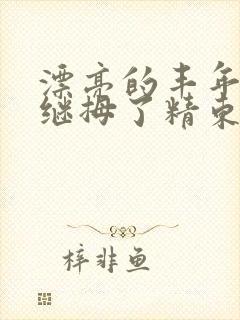 漂亮的丰年
继拇了精束
梓非鱼